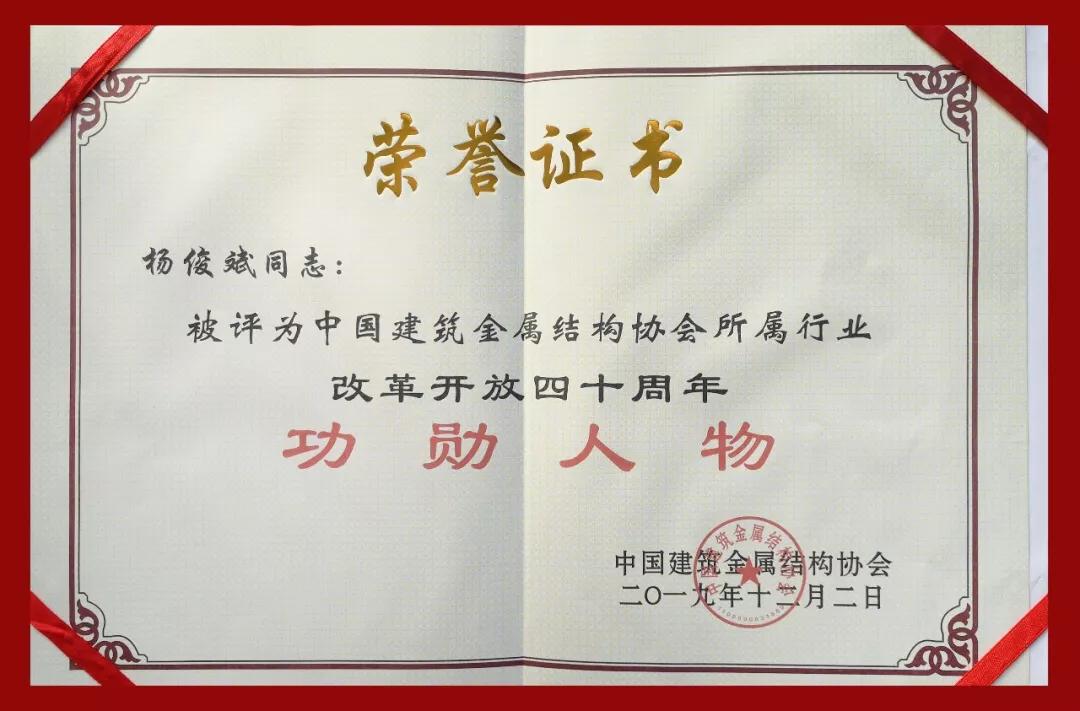 荣誉证书
杨俊斌同志：
被评为中国建筑金属结构协会所属行业
改革开放四十周年
功勋人物
中国建筑金属结构协会
中国建筑金属结构协会
二〇一九年十二月二日